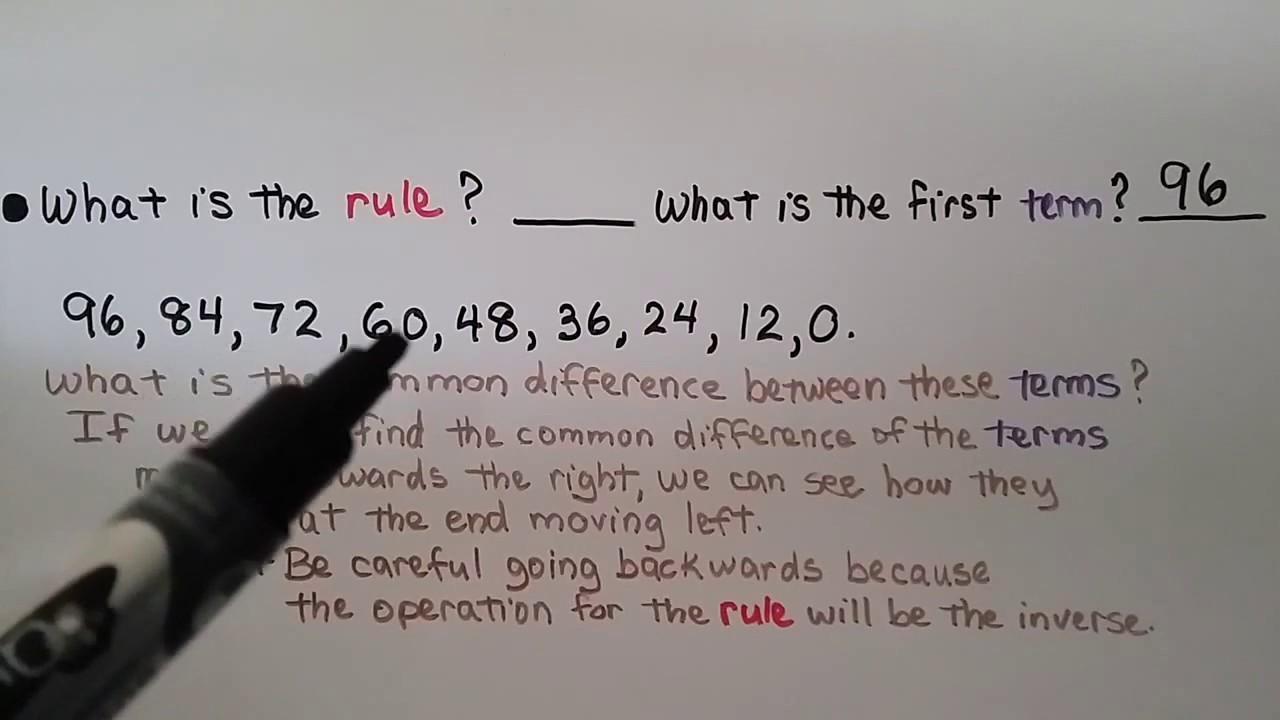 What is the rule? ____ What is the first term? 96
96, 84, 72, 60, 48, 36, 24, 12, 0.
What is common difference between these terms?
If we find the common difference of the terms
the right, we can see how they
at the end moving left.
Be careful going backwards because
the operation for the rule will be the inverse.